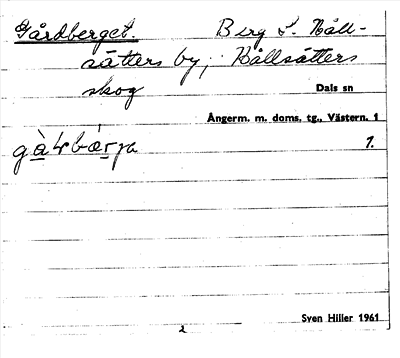 Gårdberget. Berg S. Håll-
sätters by, Hållsätters
skog Dals sn
Ångerm. m. doms. tg., Västern. 1
gàɫbærja 1.
Sven Hiller 1961
2